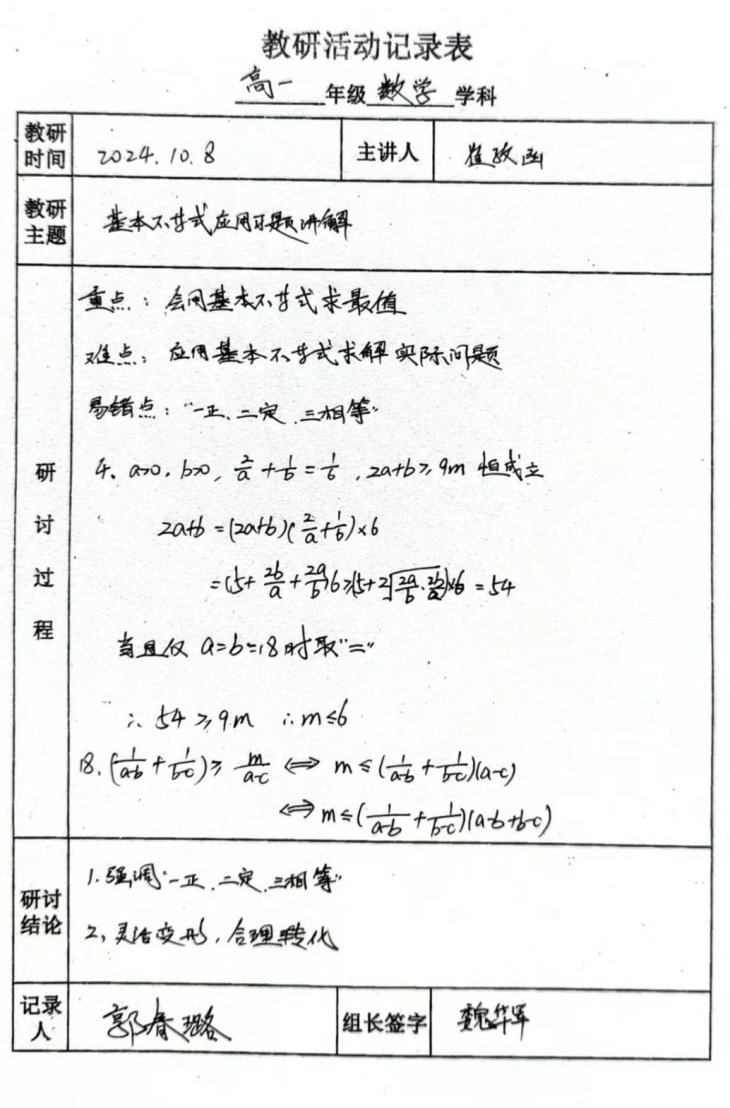 教研活动记录表
高一年级数学学科
教研时间 2024.10.8 主讲人 崔政函
教研主题 基本不等式应用习题讲解
研讨过程
重点：会用基本不等式求最值
难点：应用基本不等式求解实际问题
易错点："一正、二定、三相等"
4、a>0，b>0，2/a+1/b=1/6，2a+b≥9m 恒成立
2a+b=(2a+b)(2/a+1/b)×6
=(5+2b/a+2a/b)6≥(5+2√(2a/b·2b/a))×6=54
当且仅 a=b=18时取"="
∴ 54≥9m ∴m≤6
18、(1/(a-b)+1/(b-c))≥m/(a-c) ⟺ m≤(1/(a-b)+1/(b-c))(a-c)
⟺ m≤(1/(a-b)+1/(b-c))(a-b+b-c)
研讨结论
1.强调"一正、二定、三相等"
2、灵活变形，合理转化
记录人 郭春璐 组长签字 魏华军